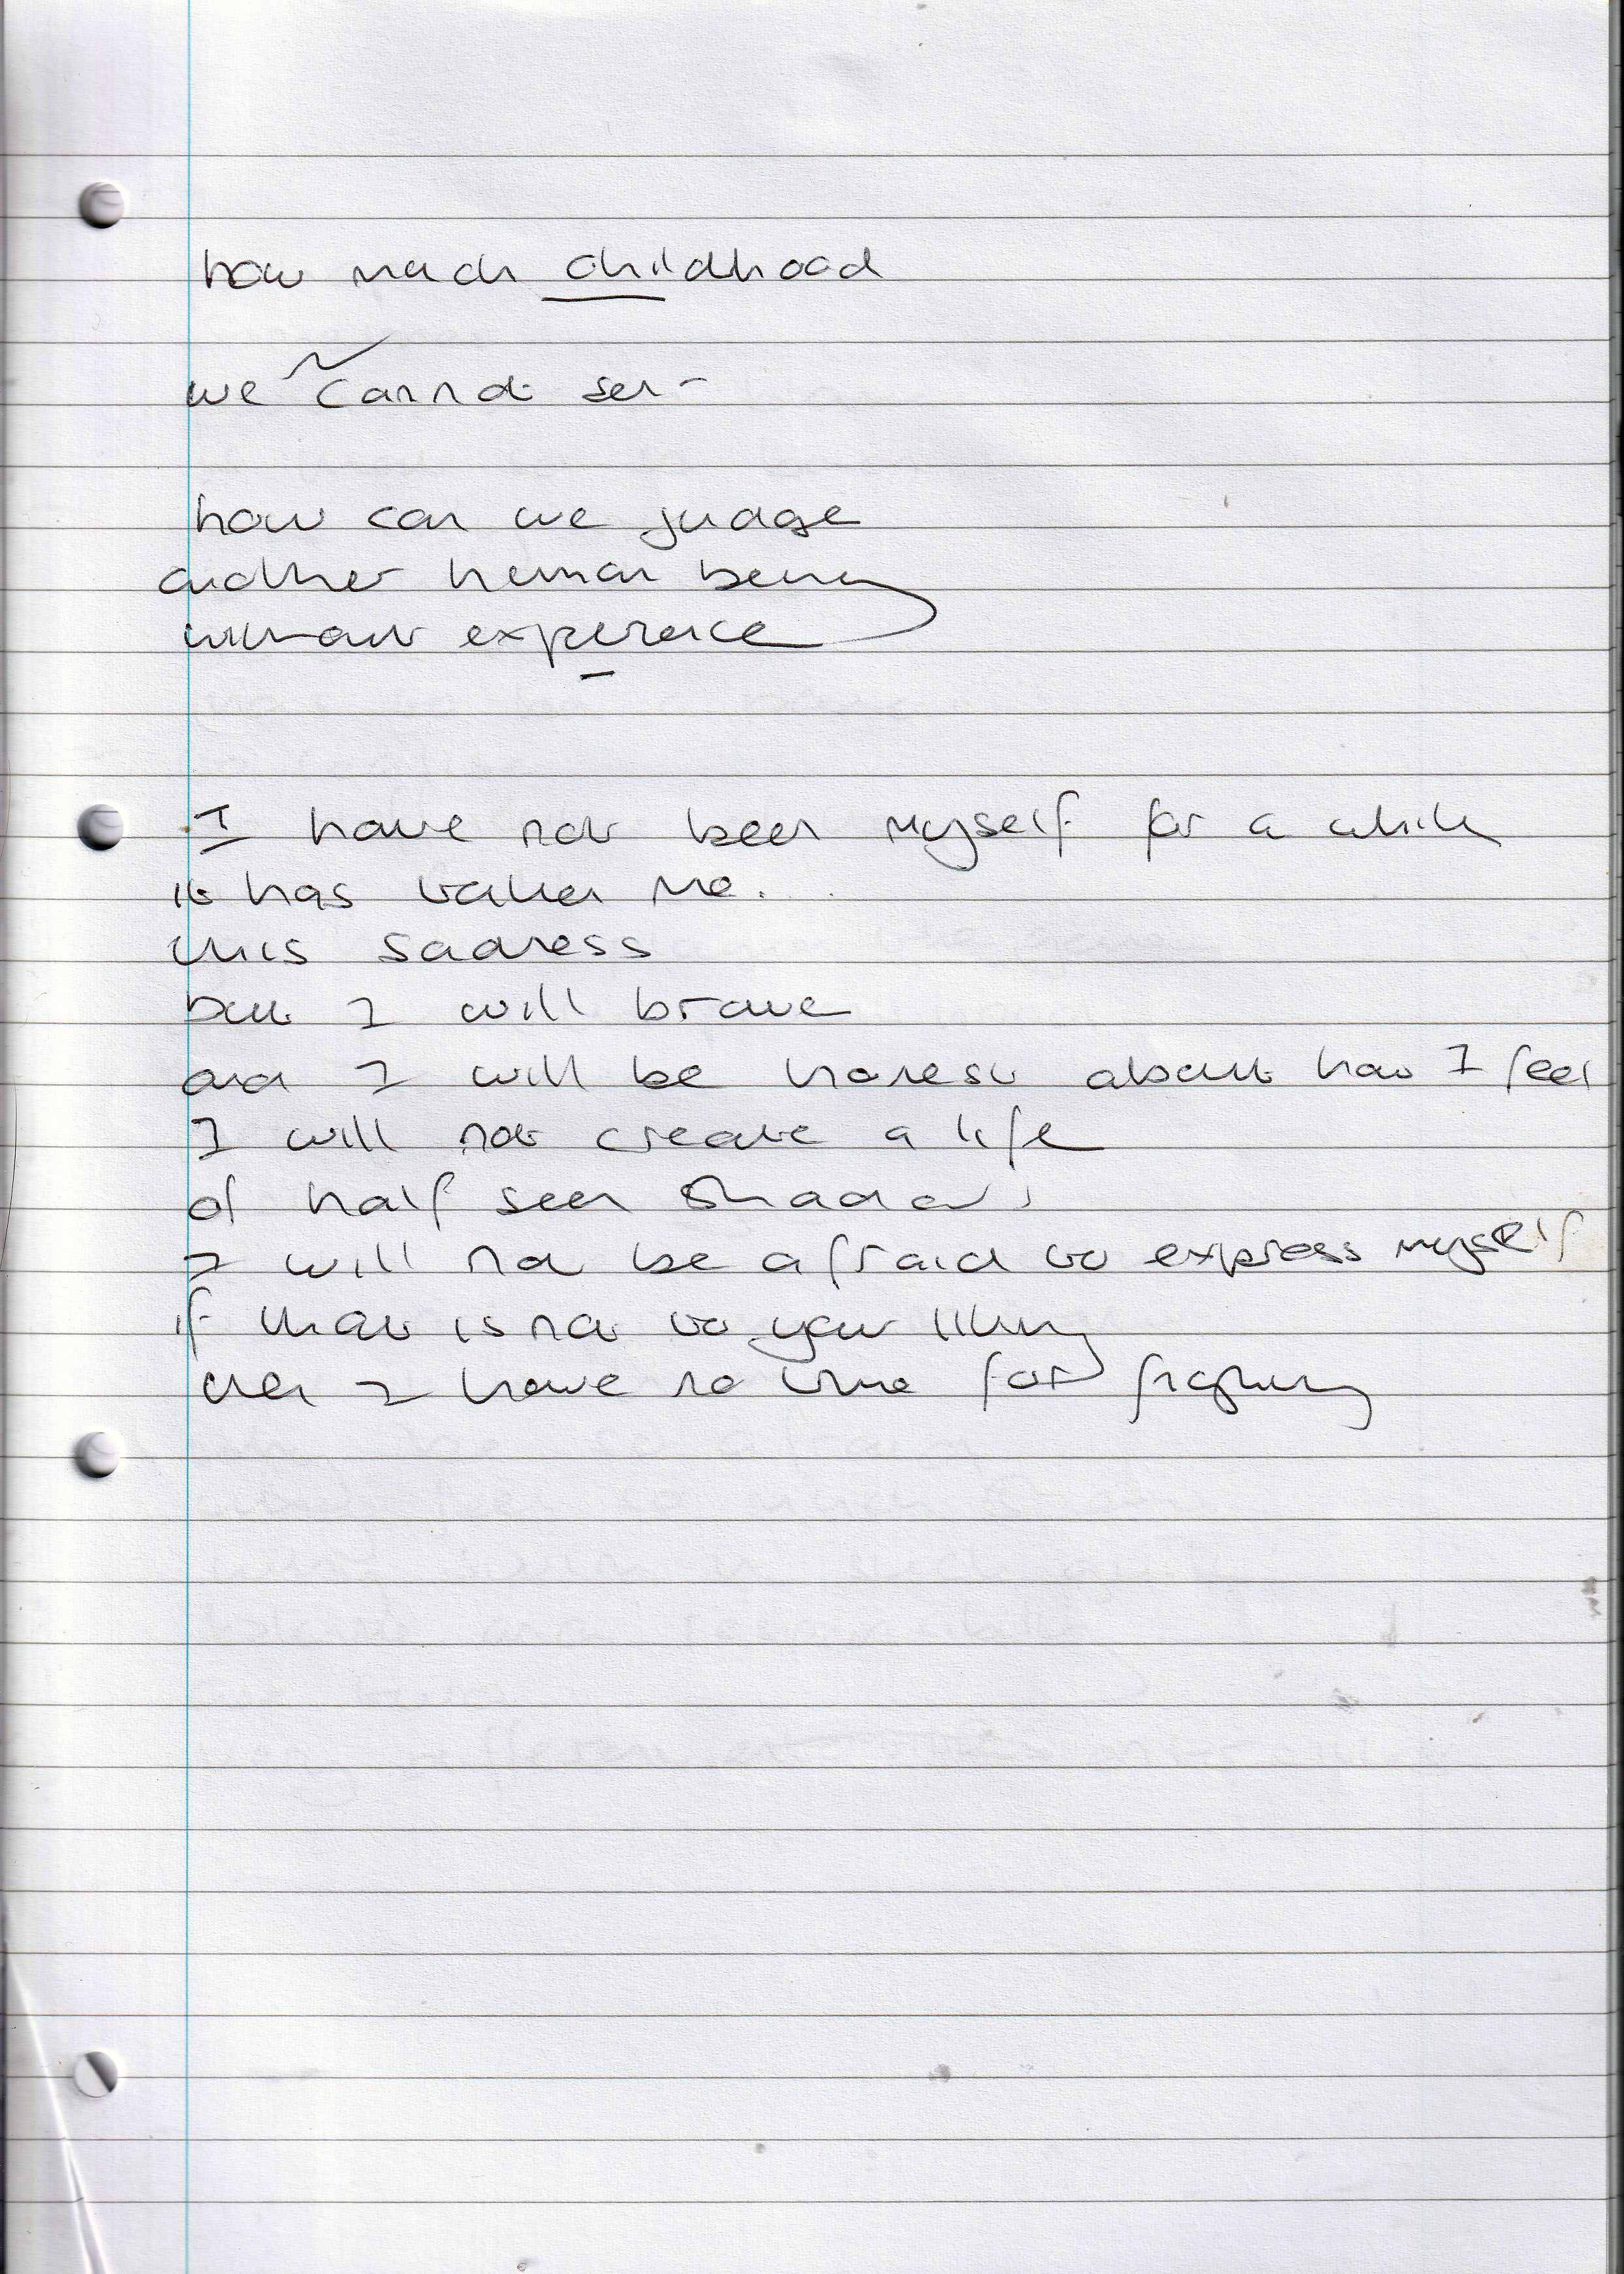 how much childhood
we cannot
how can we judge
another human being
without experience
I have not been myself for a while
it has taken me...
this sadness
but I will brave
and I will be honest about how I feel
I will not create a life
of half seen shadows
I will not be afraid to express myself
if that is not to your liking
then I have no time for fighting